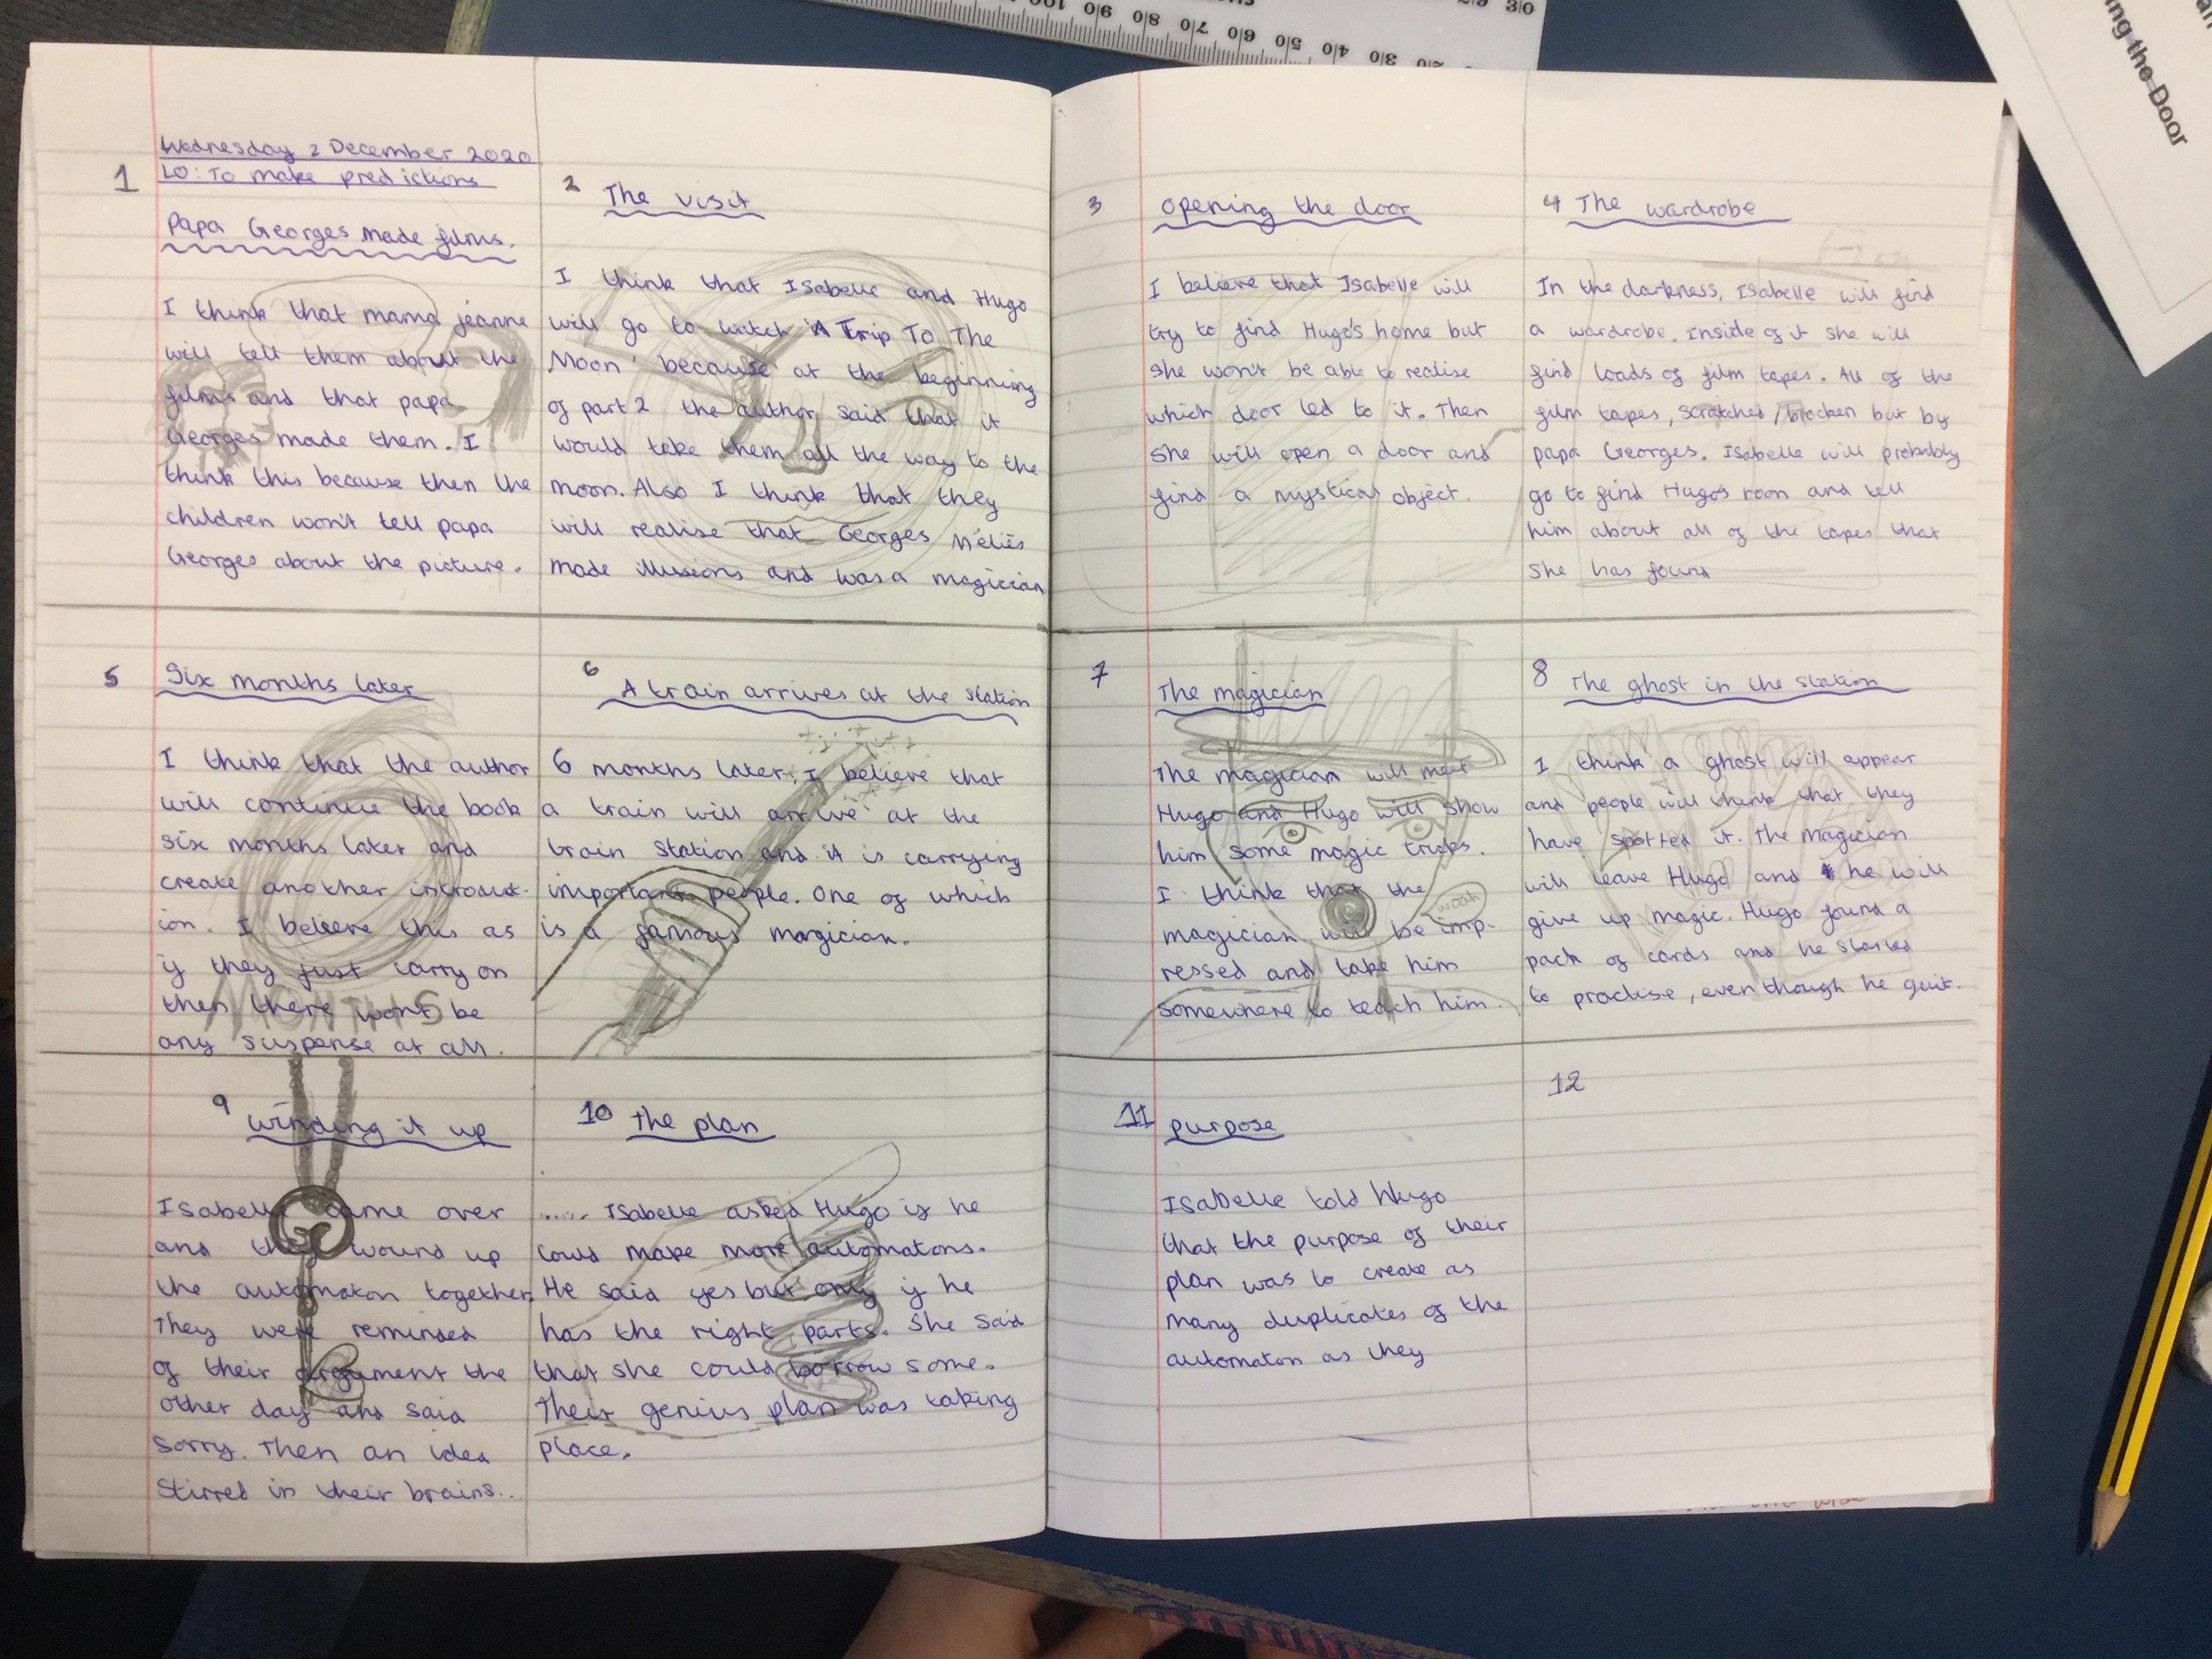 Wednesday 2 December 2020
LO: To make predictions
1
Papa Georges made films.
I think that mama jeanne
will tell them about the
films and that papa
Georges made them. I
think this because then the
children won't tell papa
Georges about the picture.
2 The visit
I think that Isabelle and Hugo
will go to watch 'A Trip To The
Moon' because at the beginning
of part 2 the author said that it
would take them all the way to the
moon. Also I think that they
will realise that Georges Méliès
made illusions and was a magician
3 opening the door
I believe that Isabelle will
try to find Hugo's home but
she won't be able to realise
which door led to it. Then
she will open a door and
find a mystical object.
4 The wardrobe
In the darkness, Isabelle will find
a wardrobe. Inside of it she will
find loads of film tapes. All of the
film tapes, scratched/brocken but by
papa Georges. Isabelle will probably
go to find Hugo's room and tell
him about all of the tapes that
she has found
5 Six months later
I think that the author
will continue the book
six months later and
create another introduct-
ion. I believe this as
if they just carry on
then there won't be
any suspense at all.
MONTHS
6 A train arrives at the station
6 months later, I believe that
a train will arrive at the
train station and it is carrying
important people. One of which
is a famous magician.
7 The magician
The magician will meet
Hugo and Hugo will show
him some magic tricks.
I think that the
magician will be imp-
ressed and take him
somewhere to teach him.
woah
8 The ghost in the station
I think a ghost will appear
and people will think that they
have spotted it. The magician
will leave Hugo and he will
give up magic. Hugo found a
pack of cards and he started
to practise, even though he quit.
9 winding it up
Isabelle came over
and they wound up
the automaton together.
They were reminded
of their argument the
other day and said
sorry. Then an idea
stirred in their brains...
10 The plan
..... Isabelle asked Hugo if he
could make more automatons.
He said yes but only if he
has the right parts. She said
that she could borrow some.
Their genius plan was taking
place.
11 purpose
Isabelle told Hugo
that the purpose of their
plan was to create as
many duplicates of the
automaton as they
12
ing the Door
100 90 80 70 60 50 40 30 20